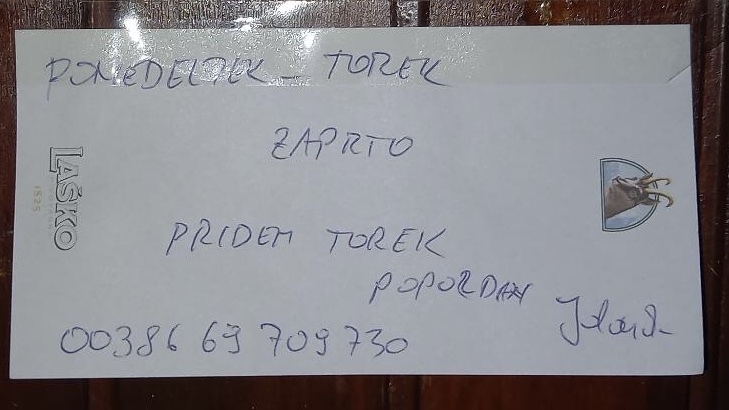 PONEDELJEK - TOREK
ZAPRTO
PRIDEM TOREK
POPOLDAN
00386 69 709 730
LAŠKO
1825